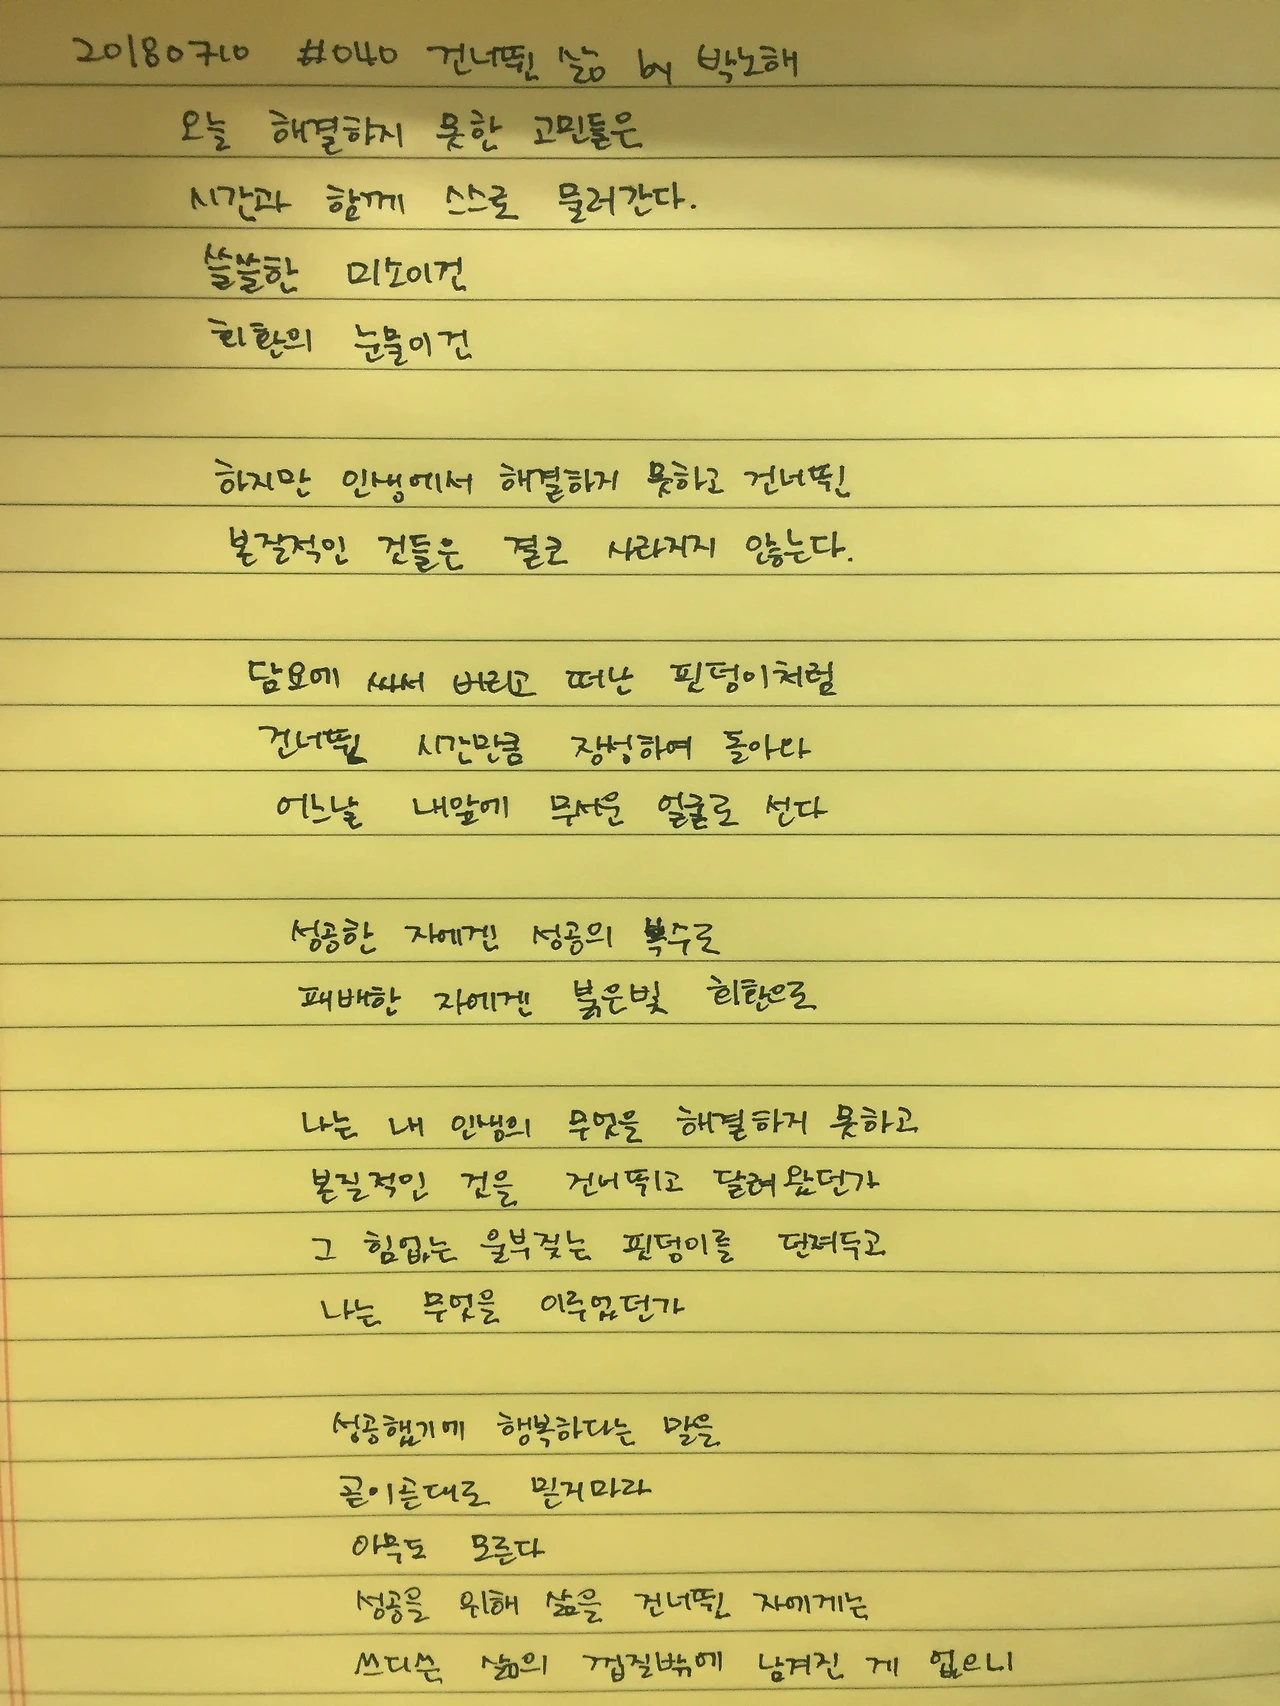 20180710 #040 건너뛴 삶 by 박노해
오늘 해결하지 못한 고민들은
시간과 함께 스스로 물러간다.
쓸쓸한 미소이건
회환의 눈물이건
하지만 인생에서 해결하지 못하고 건너뛴
본질적인 것들은 결코 사라지지 않는다.
담요에 싸서 버리고 떠난 핏덩이처럼
건너뛴 시간만큼 장성하여 돌아와
어느날 내앞에 무서운 얼굴로 선다
성공한 자에겐 성공의 복수로
패배한 자에겐 붉은빛 회환으로
나는 내 인생의 무엇을 해결하지 못하고
본질적인 것을 건너뛰고 달려왔던가
그 힘없는 울부짖는 핏덩이를 던져두고
나는 무엇을 이루었던가
성공했기에 행복하다는 말을
곧이곧대로 믿지마라
아무도 모른다
성공을 위해 삶을 건너뛴 자에게는
쓰디쓴 삶의 껍질밖에 남겨진 게 없으니